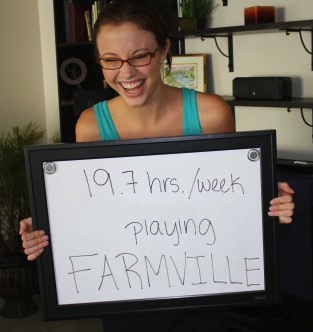 19.7 hrs./week
playing
FARMVILLE